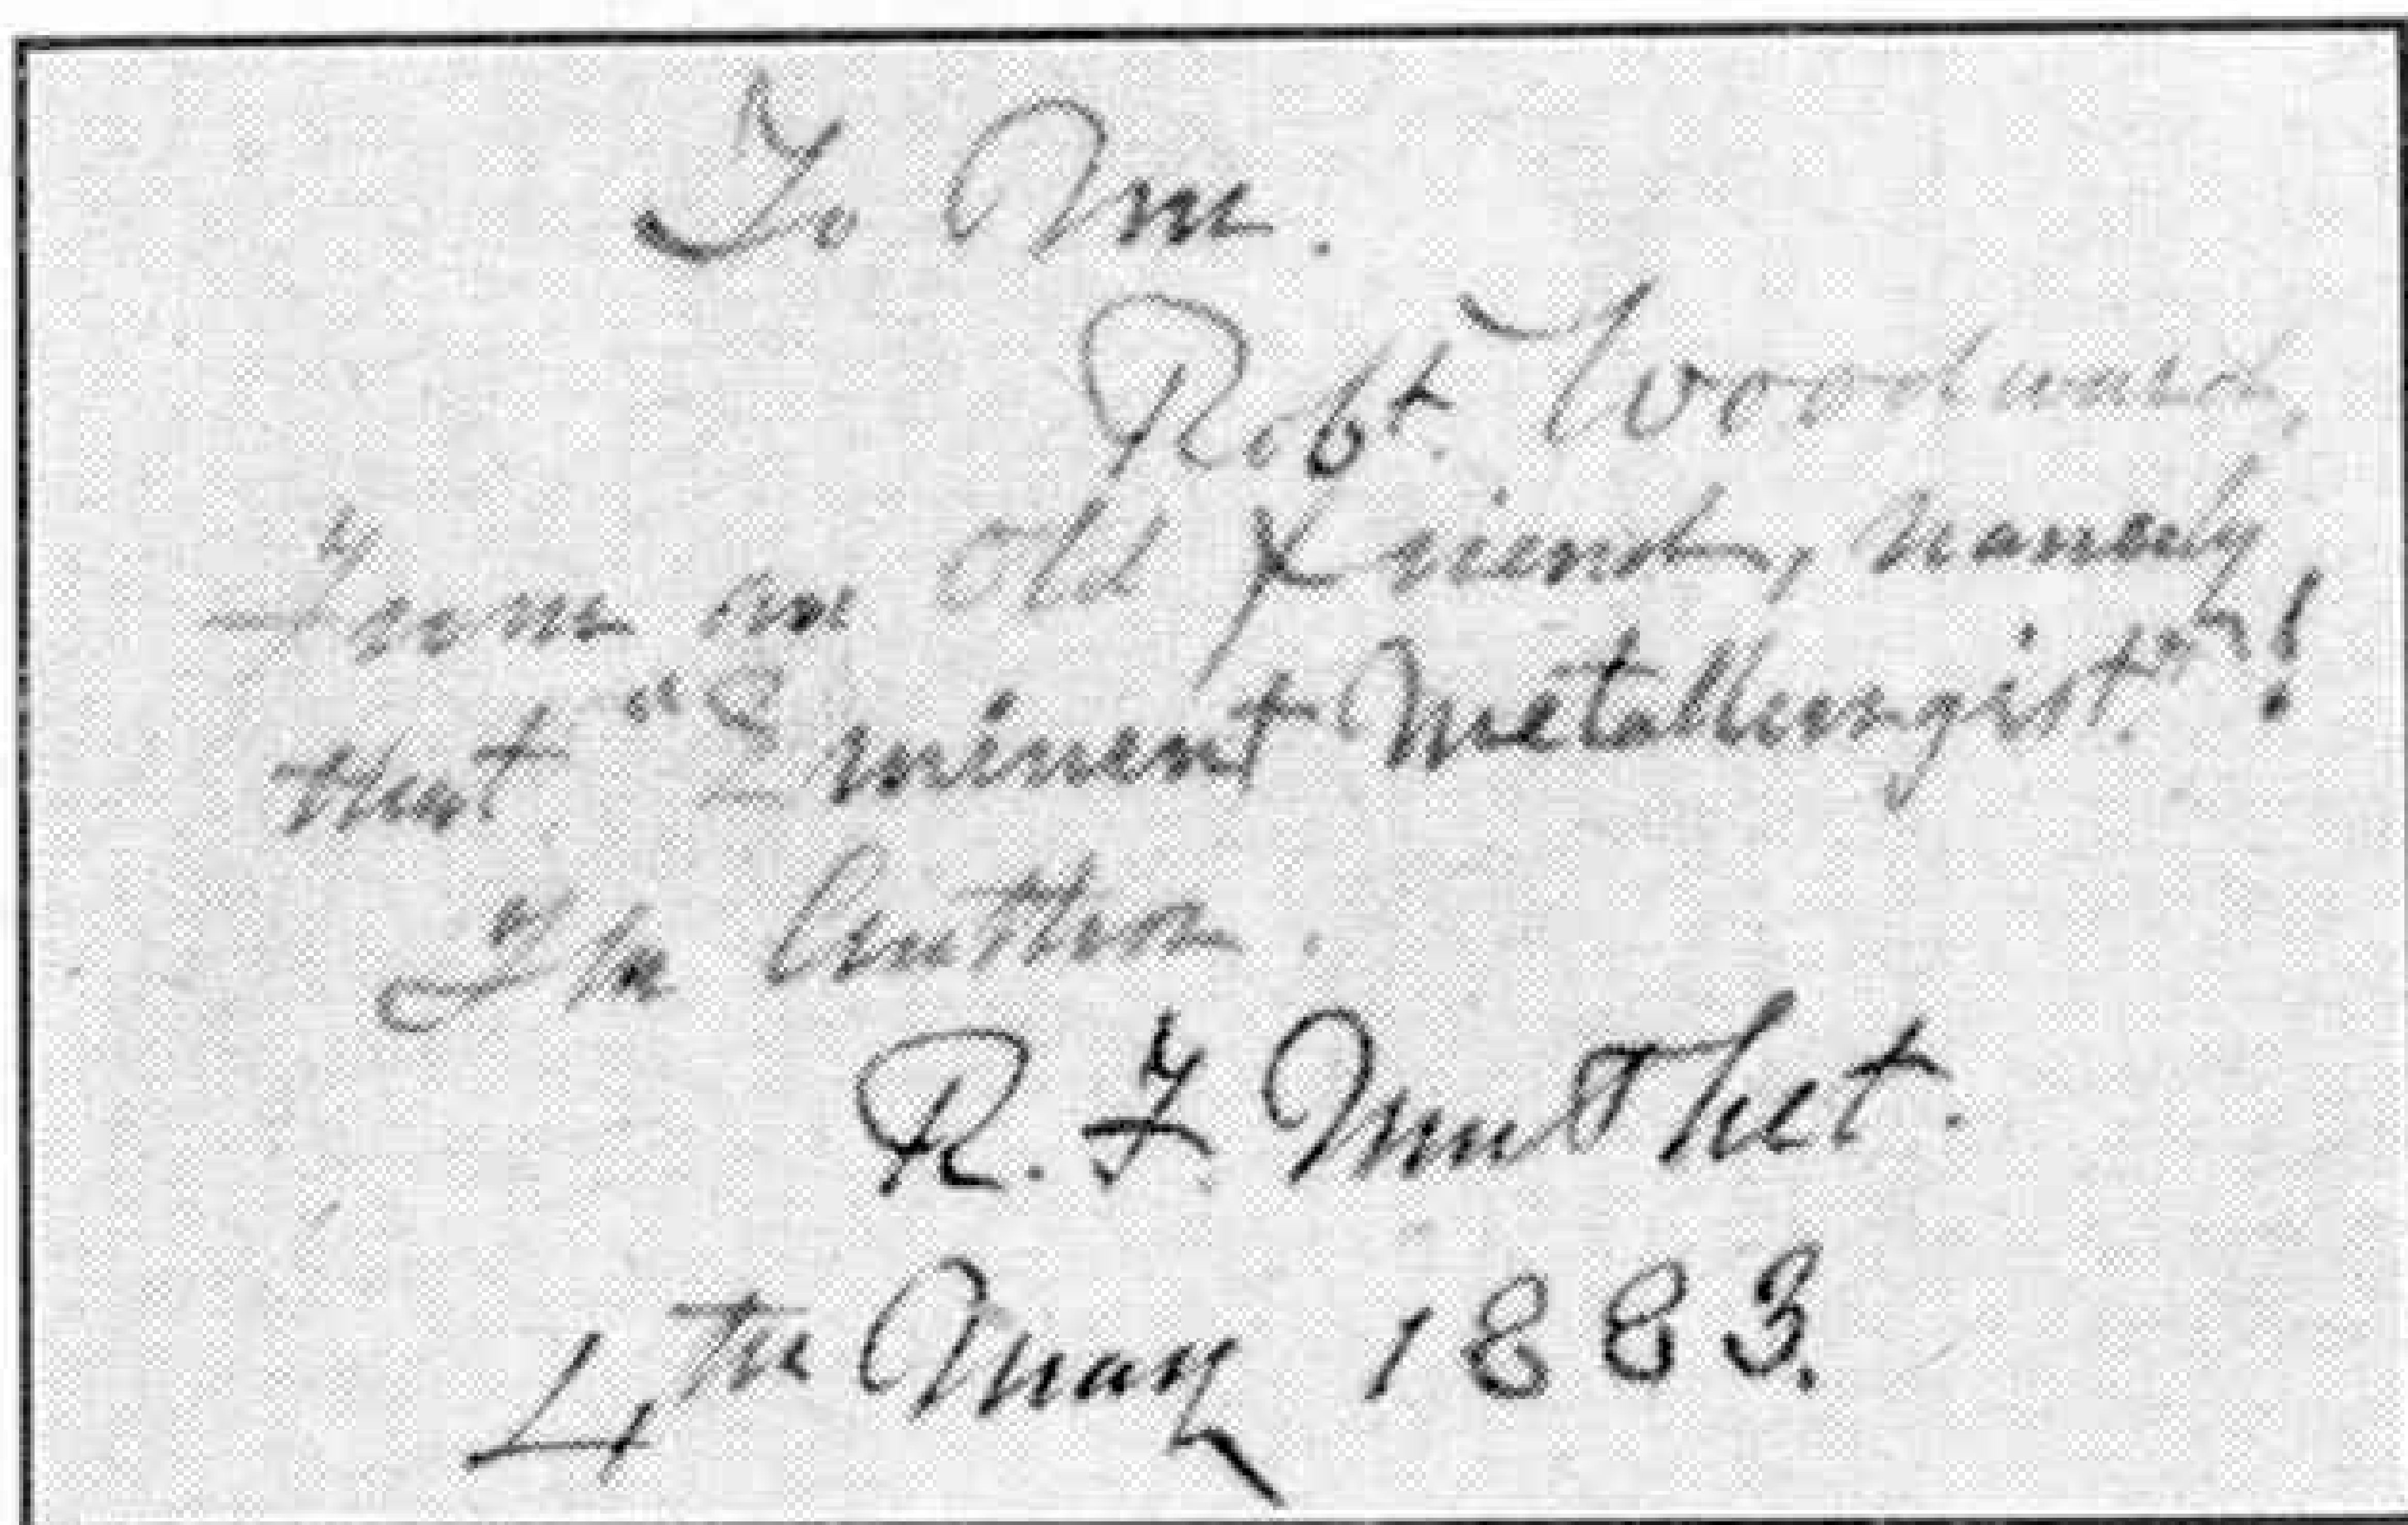 To Mr.
Robt. Woodward,
From an old friend, namely
that "Eminent Metallurgist."!
The Author.
R. F. Mushet.
4th May 1883.